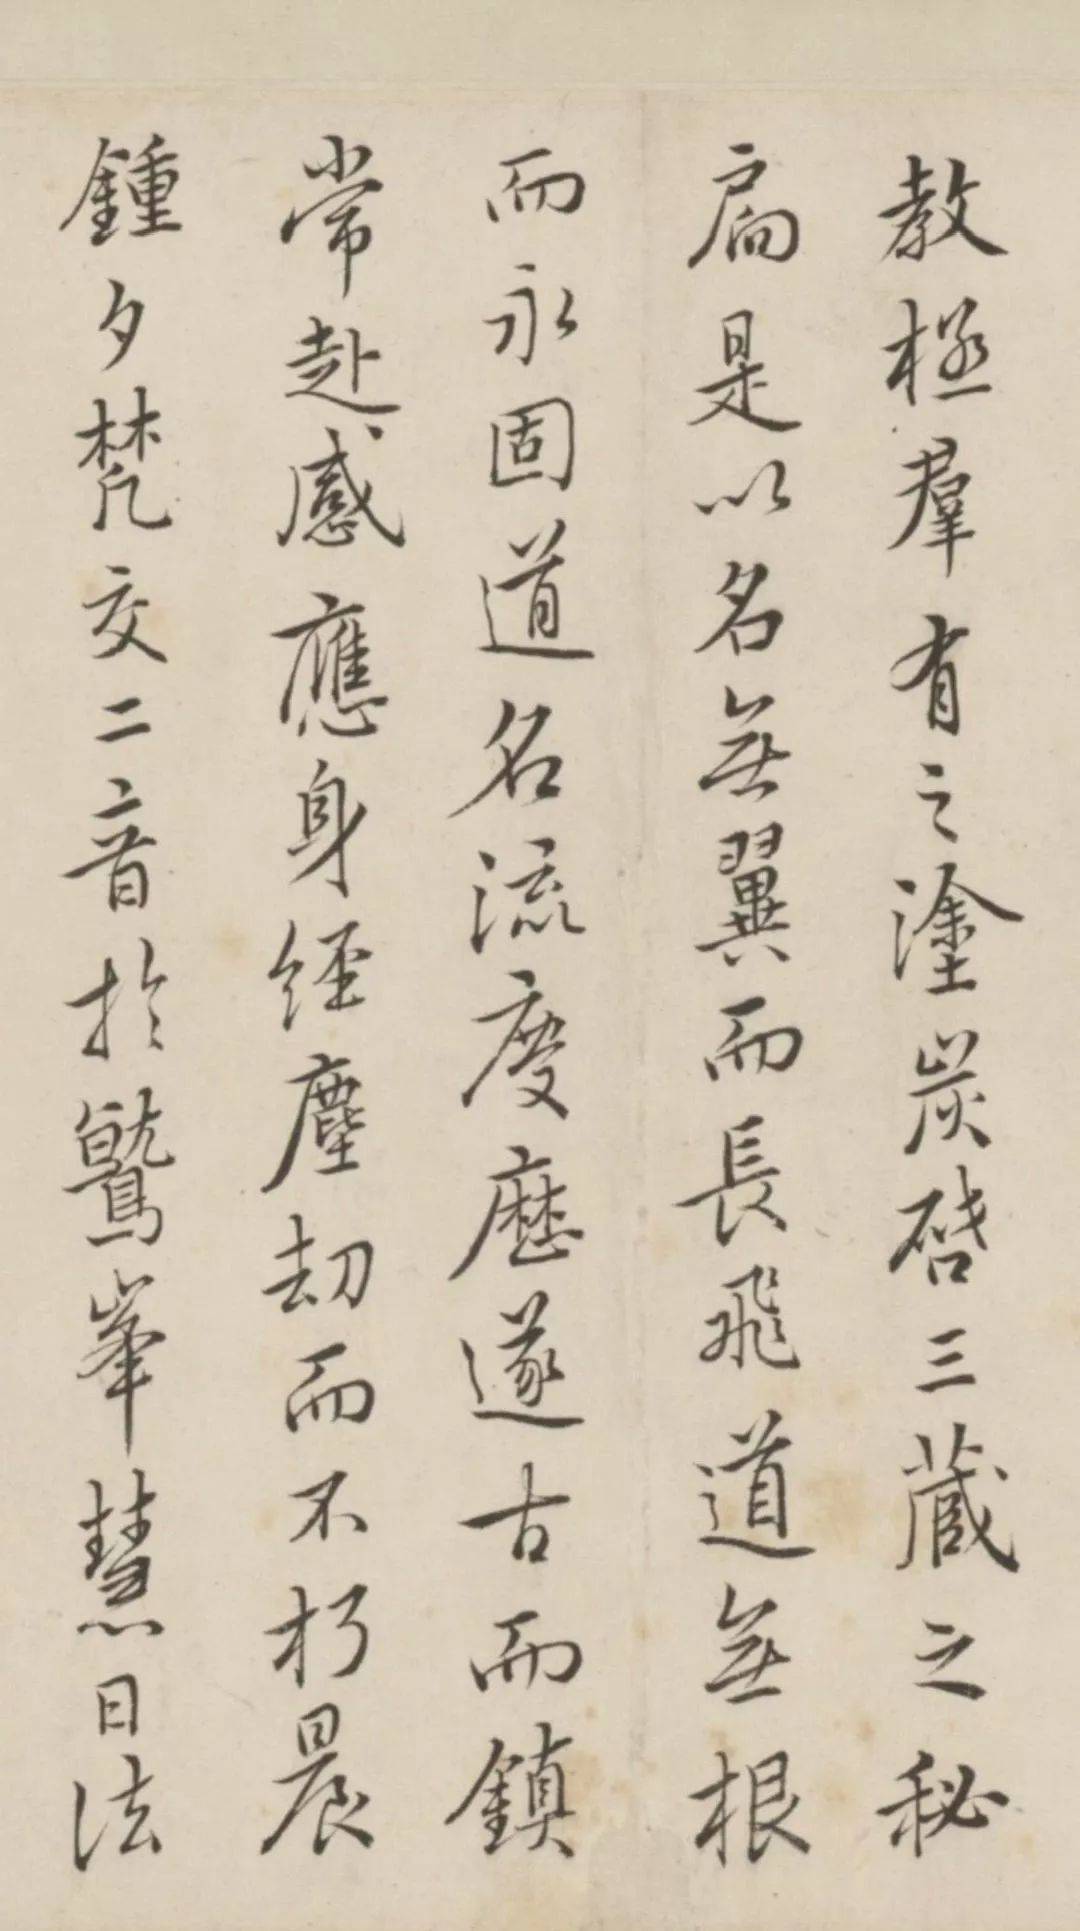 教極羣有之塗炭啓三藏之秘
扃是以名無翼而長飛道無根
而永固道名流慶歷遂古而鎮
常赴感應身經塵劫而不朽晨
鍾夕梵交二音於鷲峯慧日法